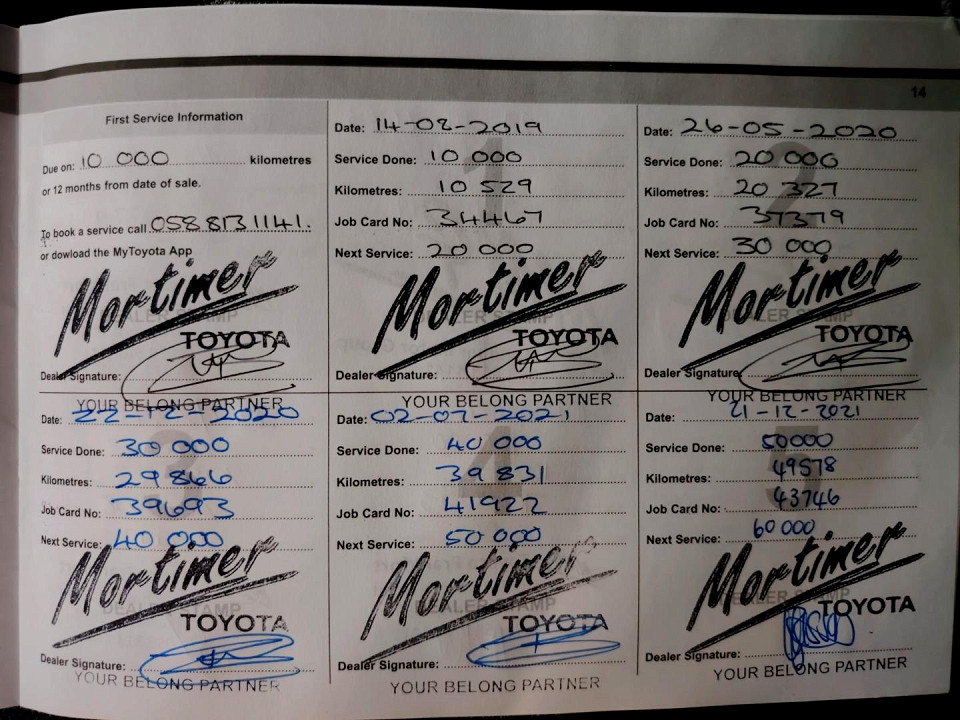 14
First Service Information
Due on: 10 000 kilometres
or 12 months from date of sale.
To book a service call 058 813 1141.
or dowload the MyToyota App
Mortimer
TOYOTA
Dealer Signature:
YOUR BELONG PARTNER
1
Date: 14-02-2019
Service Done: 10 000
Kilometres: 10 529
Job Card No: 34467
Next Service: 20 000
DEALER STAMP
Mortimer
TOYOTA
Dealer Signature:
YOUR BELONG PARTNER
2
Date: 26-05-2020
Service Done: 20 000
Kilometres: 20 327
Job Card No: 37379
Next Service: 30 000
DEALER STAMP
Mortimer
TOYOTA
Dealer Signature:
YOUR BELONG PARTNER
3
Date: 22-12-2020
Service Done: 30 000
Kilometres: 29 866
Job Card No: 39693
Next Service: 40 000
DEALER STAMP
Mortimer
TOYOTA
Dealer Signature:
YOUR BELONG PARTNER
4
Date: 02-07-2021
Service Done: 40 000
Kilometres: 39 831
Job Card No: 41922
Next Service: 50 000
DEALER STAMP
Mortimer
TOYOTA
Dealer Signature:
YOUR BELONG PARTNER
5
Date: 21-12-2021
Service Done: 50000
Kilometres: 49578
Job Card No: 43746
Next Service: 60 000
DEALER STAMP
Mortimer
TOYOTA
Dealer Signature:
YOUR BELONG PARTNER